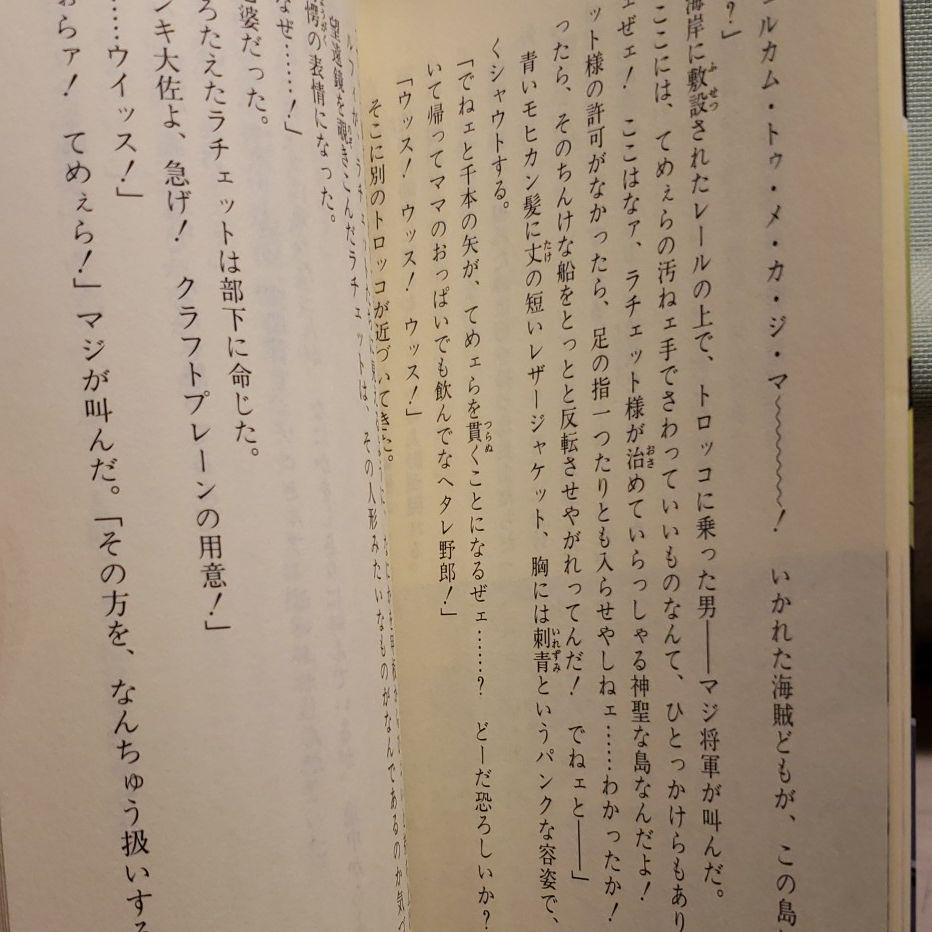 ルカム・トゥ・メ・カ・ジ・マ〜〜〜〜〜！　いかれた海賊どもが、この島
？」
海岸に敷設されたレールの上で、トロッコに乗った男――マジ将軍が叫んだ。
ここには、てめぇらの汚ねェ手でさわっていいものなんて、ひとっかけらもあり
ぇぜェ！　ここはなァ、ラチェット様が治めていらっしゃる神聖な島なんだよ！
ット様の許可がなかったら、足の指一つたりとも入らせやしねェ……わかったか！
ったら、そのちんけな船をとっとと反転させやがれってんだ！　でねェと――」
青いモヒカン髪に丈の短いレザージャケット、胸には刺青というパンクな容姿で、
くシャウトする。
「でねェと千本の矢が、てめェらを貫くことになるぜェ……？　どーだ恐ろしいか？
いて帰ってママのおっぱいでも飲んでなヘタレ野郎！」
「ウッス！　ウッス！　ウッス！」
そこに別のトロッコが近づいてきた。
ラチェットは、その人形みたいなものがなんであるのか気づ
望遠鏡を覗きこんだラチ
愕の表情になった。
なぜ……！」
婆だった。
ろたえたラチェットは部下に命じた。
ンキ大佐よ、急げ！　クラフトプレーンの用意！」
……ウイッス！」
おらァ！　てめぇら！」マジが叫んだ。「その方を、なんちゅう扱いする